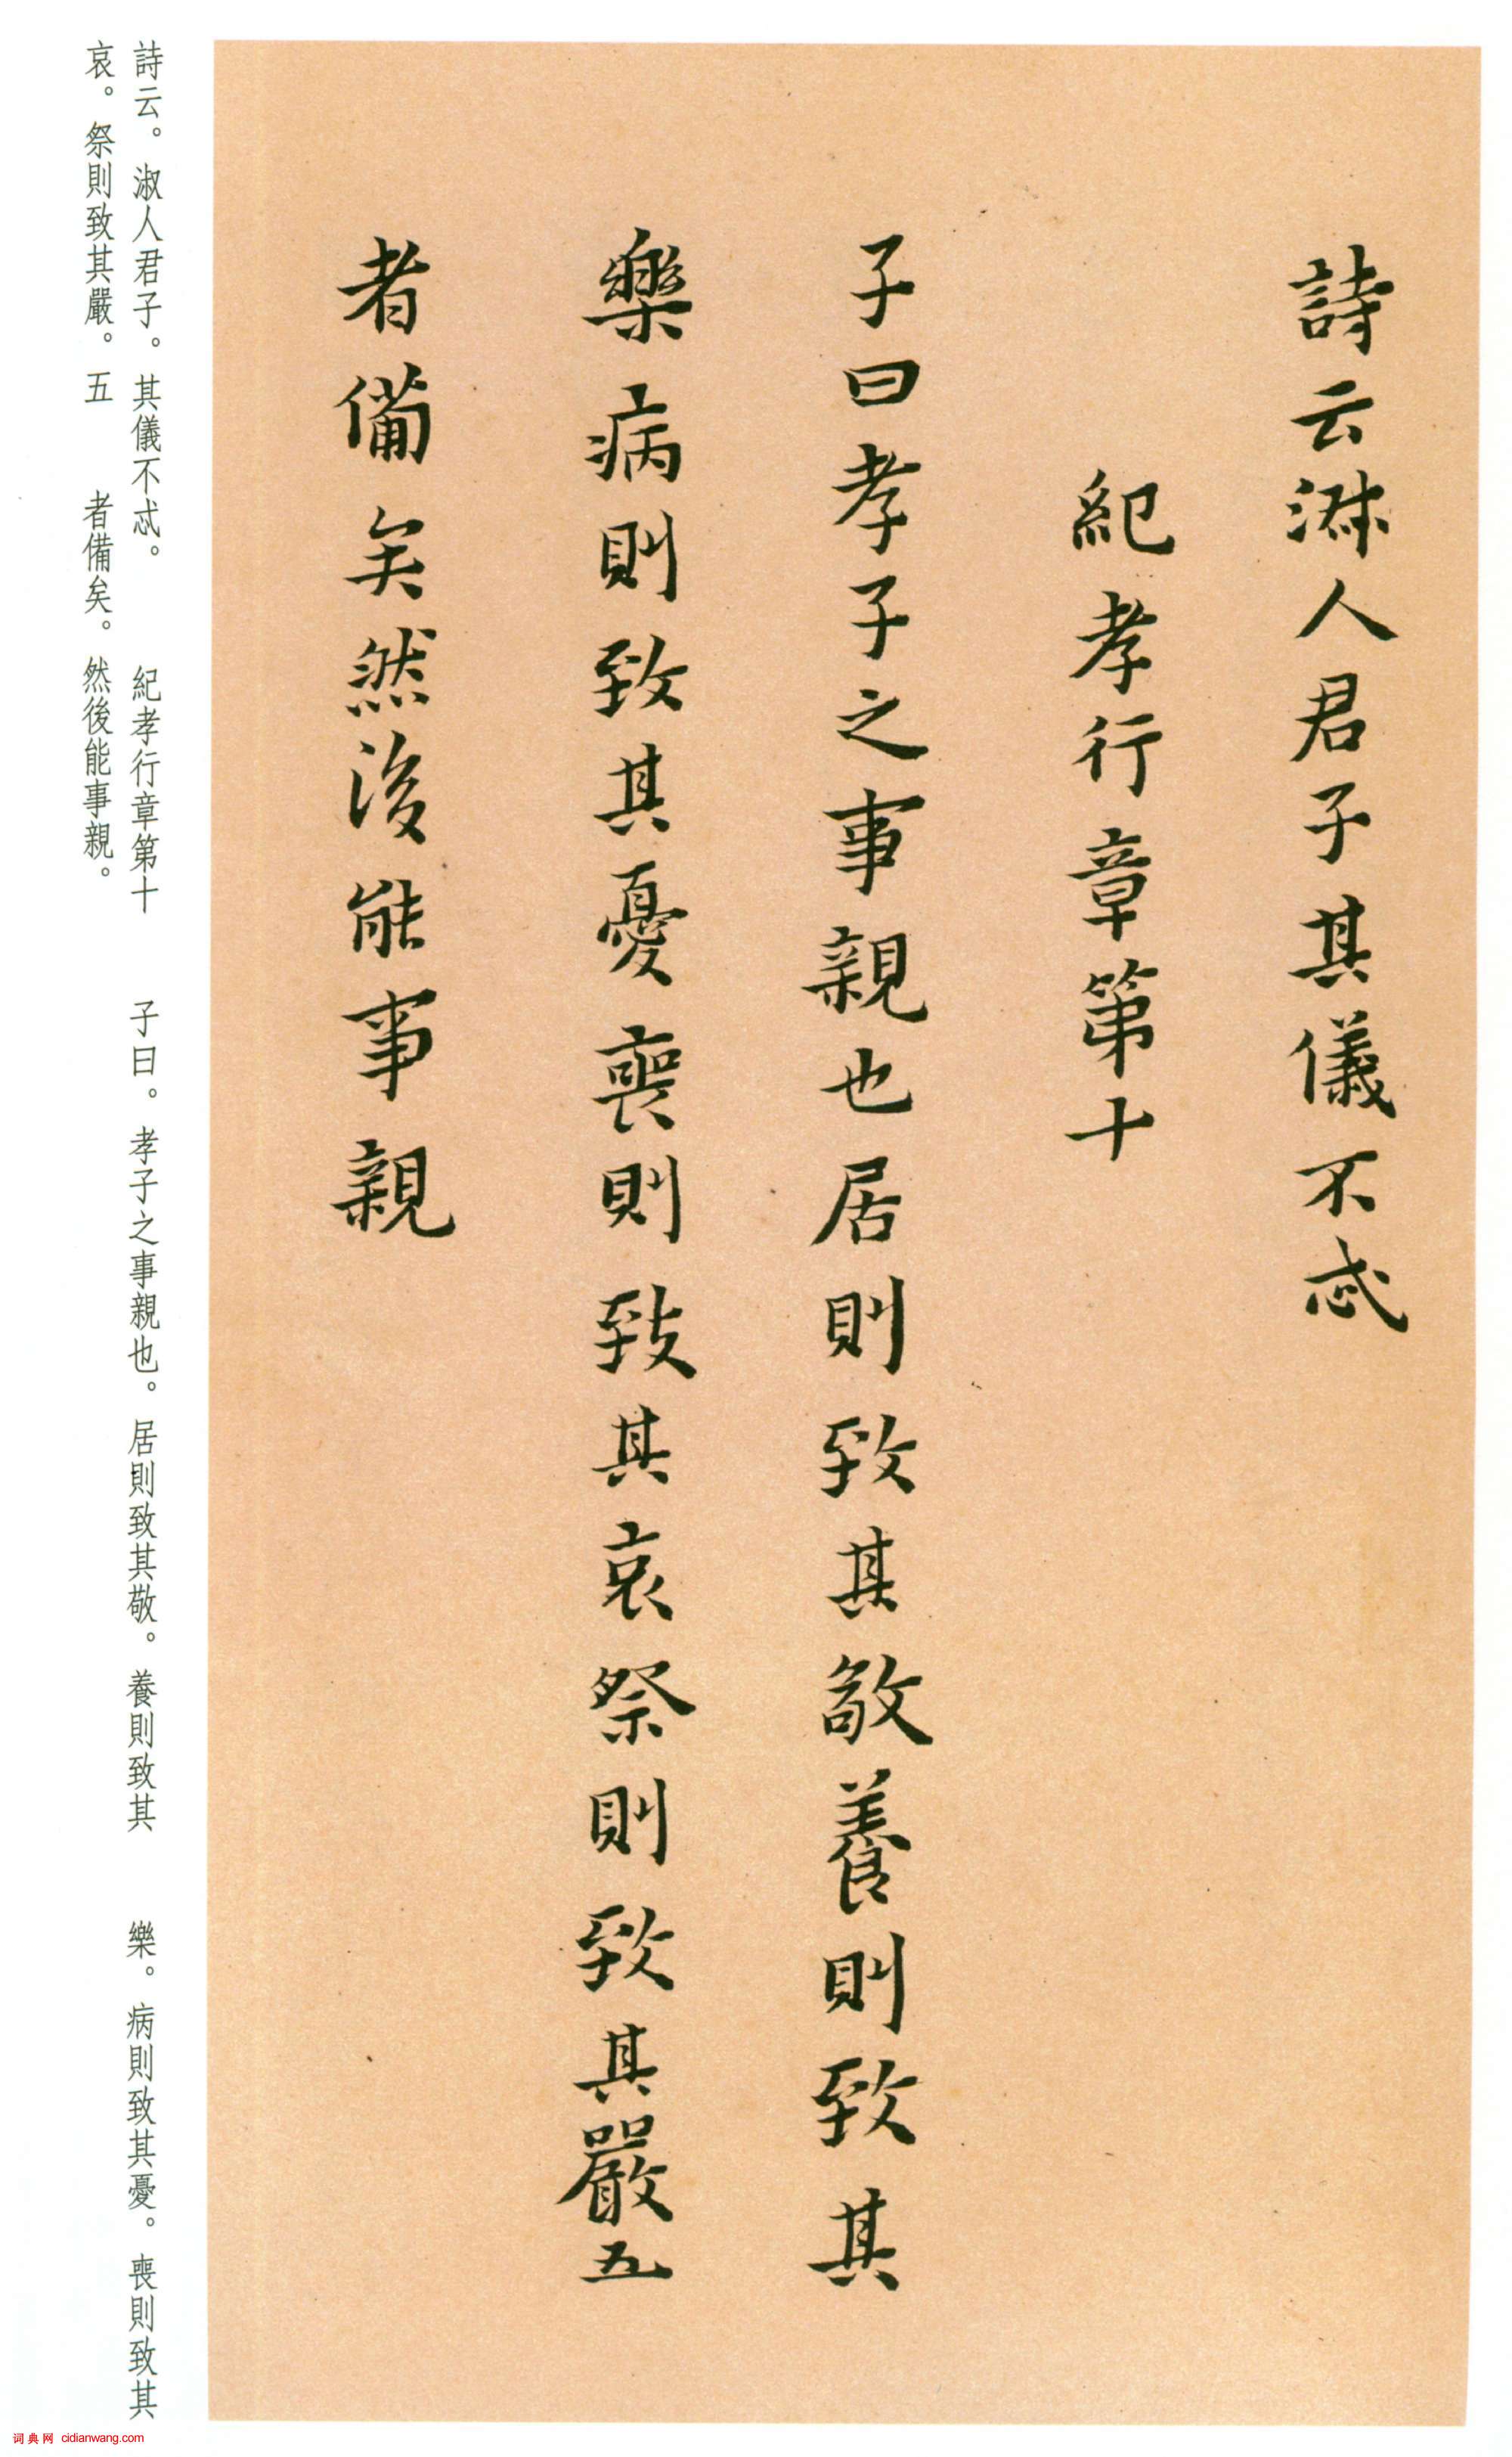 詩云淑人君子其儀不忒
紀孝行章第十
子曰孝子之事親也居則致其敬養則致其
樂病則致其憂喪則致其哀祭則致其嚴五
者備矣然後能事親
詩云。淑人君子。其儀不忒。 紀孝行章第十 子曰。孝子之事親也。居則致其敬。養則致其 樂。病則致其憂。喪則致其
哀。祭則致其嚴。五 者備矣。然後能事親。
词典网 cidianwang.com